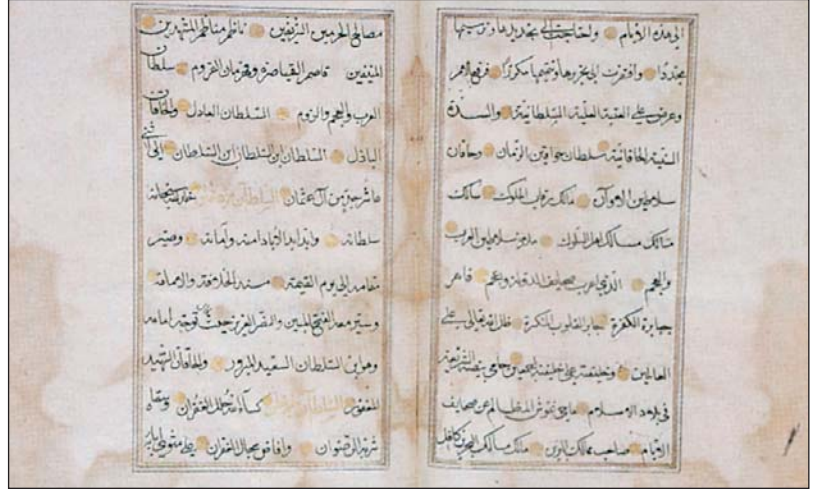 الى هذه الايام واحتاجت الى تجديدها وترسيمها
مجددًا وافتقرت الى تحريرها وتنميقها مكررًا فرفع الامر
وعرض على العتبة العلية السلطانية والسدة
السنية الخاقانية سلطان خواقين الزمان وخاقان
سلاطين الاوان مالك رقاب الملوك سالك
مسالك اهل السلوك ملاذ سلاطين العرب
والعجم الذي اعرب صحايف الدولة وعجم قاهر
جبابرة الكفرة جابر القلوب المنكسرة ظل الله تعالى على
العالمين وخليفته على خليقته اجمعين حامي بيضة الشريعة
في بلاد الاسلام ماحي نقوش المظالم عن صحايف
الايام صاحب ممالك البرين ملك مسالك البحرين كافل
مصالح الحرمين الشريفين ناظر مناظم المشهدين
المنيفين قاصم القياصرة وقهرمان القروم سلطان
العرب والعجم والروم السلطان العادل والخاقان
الباذل السلطان ابن السلطان ابن السلطان الى
عاشر جد من آل عثمان السلطان سبحانه
سلطانه وابد ابد الآباد امنه وامانه وصير
مقامه الى يوم القيمة مسند الخلافة والامامة
وسير معه الفتح المبين والنصر العزيز حيث توجه امامه
وهو ابن السلطان السعيد المبرور والخاقان الشهيد
المغفور السلطان كساه الله حلل الغفران وسقاه
شربة الرضوان وافاض سجال الغفران متولي